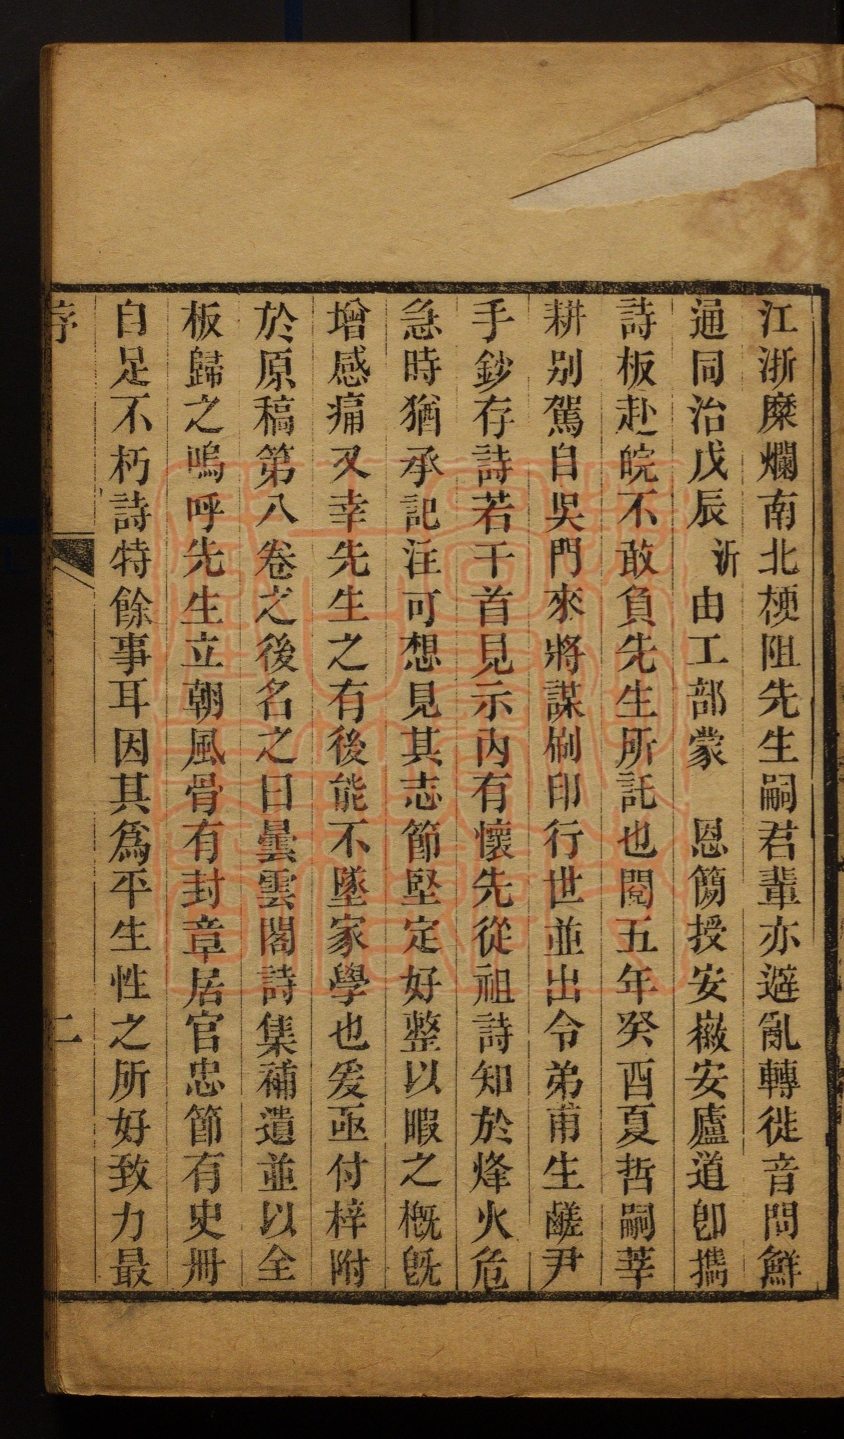 江浙糜爛南北梗阻先生嗣君輩亦避亂轉徙音問鮮
通同治戊辰沂由工部蒙　恩簡授安徽安廬道卽攜
詩板赴皖不敢負先生所託也閱五年癸酉夏哲嗣莘
耕別駕自吳門來將謀刷印行世並出令弟甫生鹺尹
手鈔存詩若干首見示內有懷先從祖詩知於烽火危
急時猶承記注可想見其志節堅定好整以暇之槪旣
增感痛又幸先生之有後能不墜家學也爰亟付梓附
於原稿第八卷之後名之曰曇雲閣詩集補遺並以全
板歸之嗚呼先生立朝風骨有封章居官忠節有史冊
自足不朽詩特餘事耳因其爲平生性之所好致力最
序
二